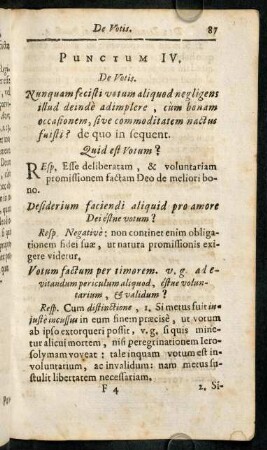 De Votis. 87
PUNCTUM IV.
De Votis.
Nunquam fecisti votum aliquod negligens
illud deindè adimplere, cùm bonam
occasionem, sive commoditatem nactus
fuisti? de quo in sequent.
Quid est Votum?
RESp. Esse deliberatam, & voluntariam
promissionem factam Deo de meliori bo-
no.
Desiderium faciendi aliquid pro amore
Dei estne votum?
Resp. Negativè: non continet enim obliga-
tionem fidei suæ, ut natura promissionis exi-
gere videtur.
Votum factum per timorem. v. g. ad e-
vitandum periculum aliquod, estne volun-
tarium, & validum?
Resp. Cum distinctione, 1. Si metus fuit in-
justè incussus in eum finem præcisè, ut votum
ab ipso extorqueri possit, v. g, si quis mine-
tur alicui mortem, nisi peregrinationem Iero-
solymam voveat: tale inquam votum est in-
voluntarium, ac invalidum: nam metus su-
stulit libertatem necessariam.
F 4 2. Si-